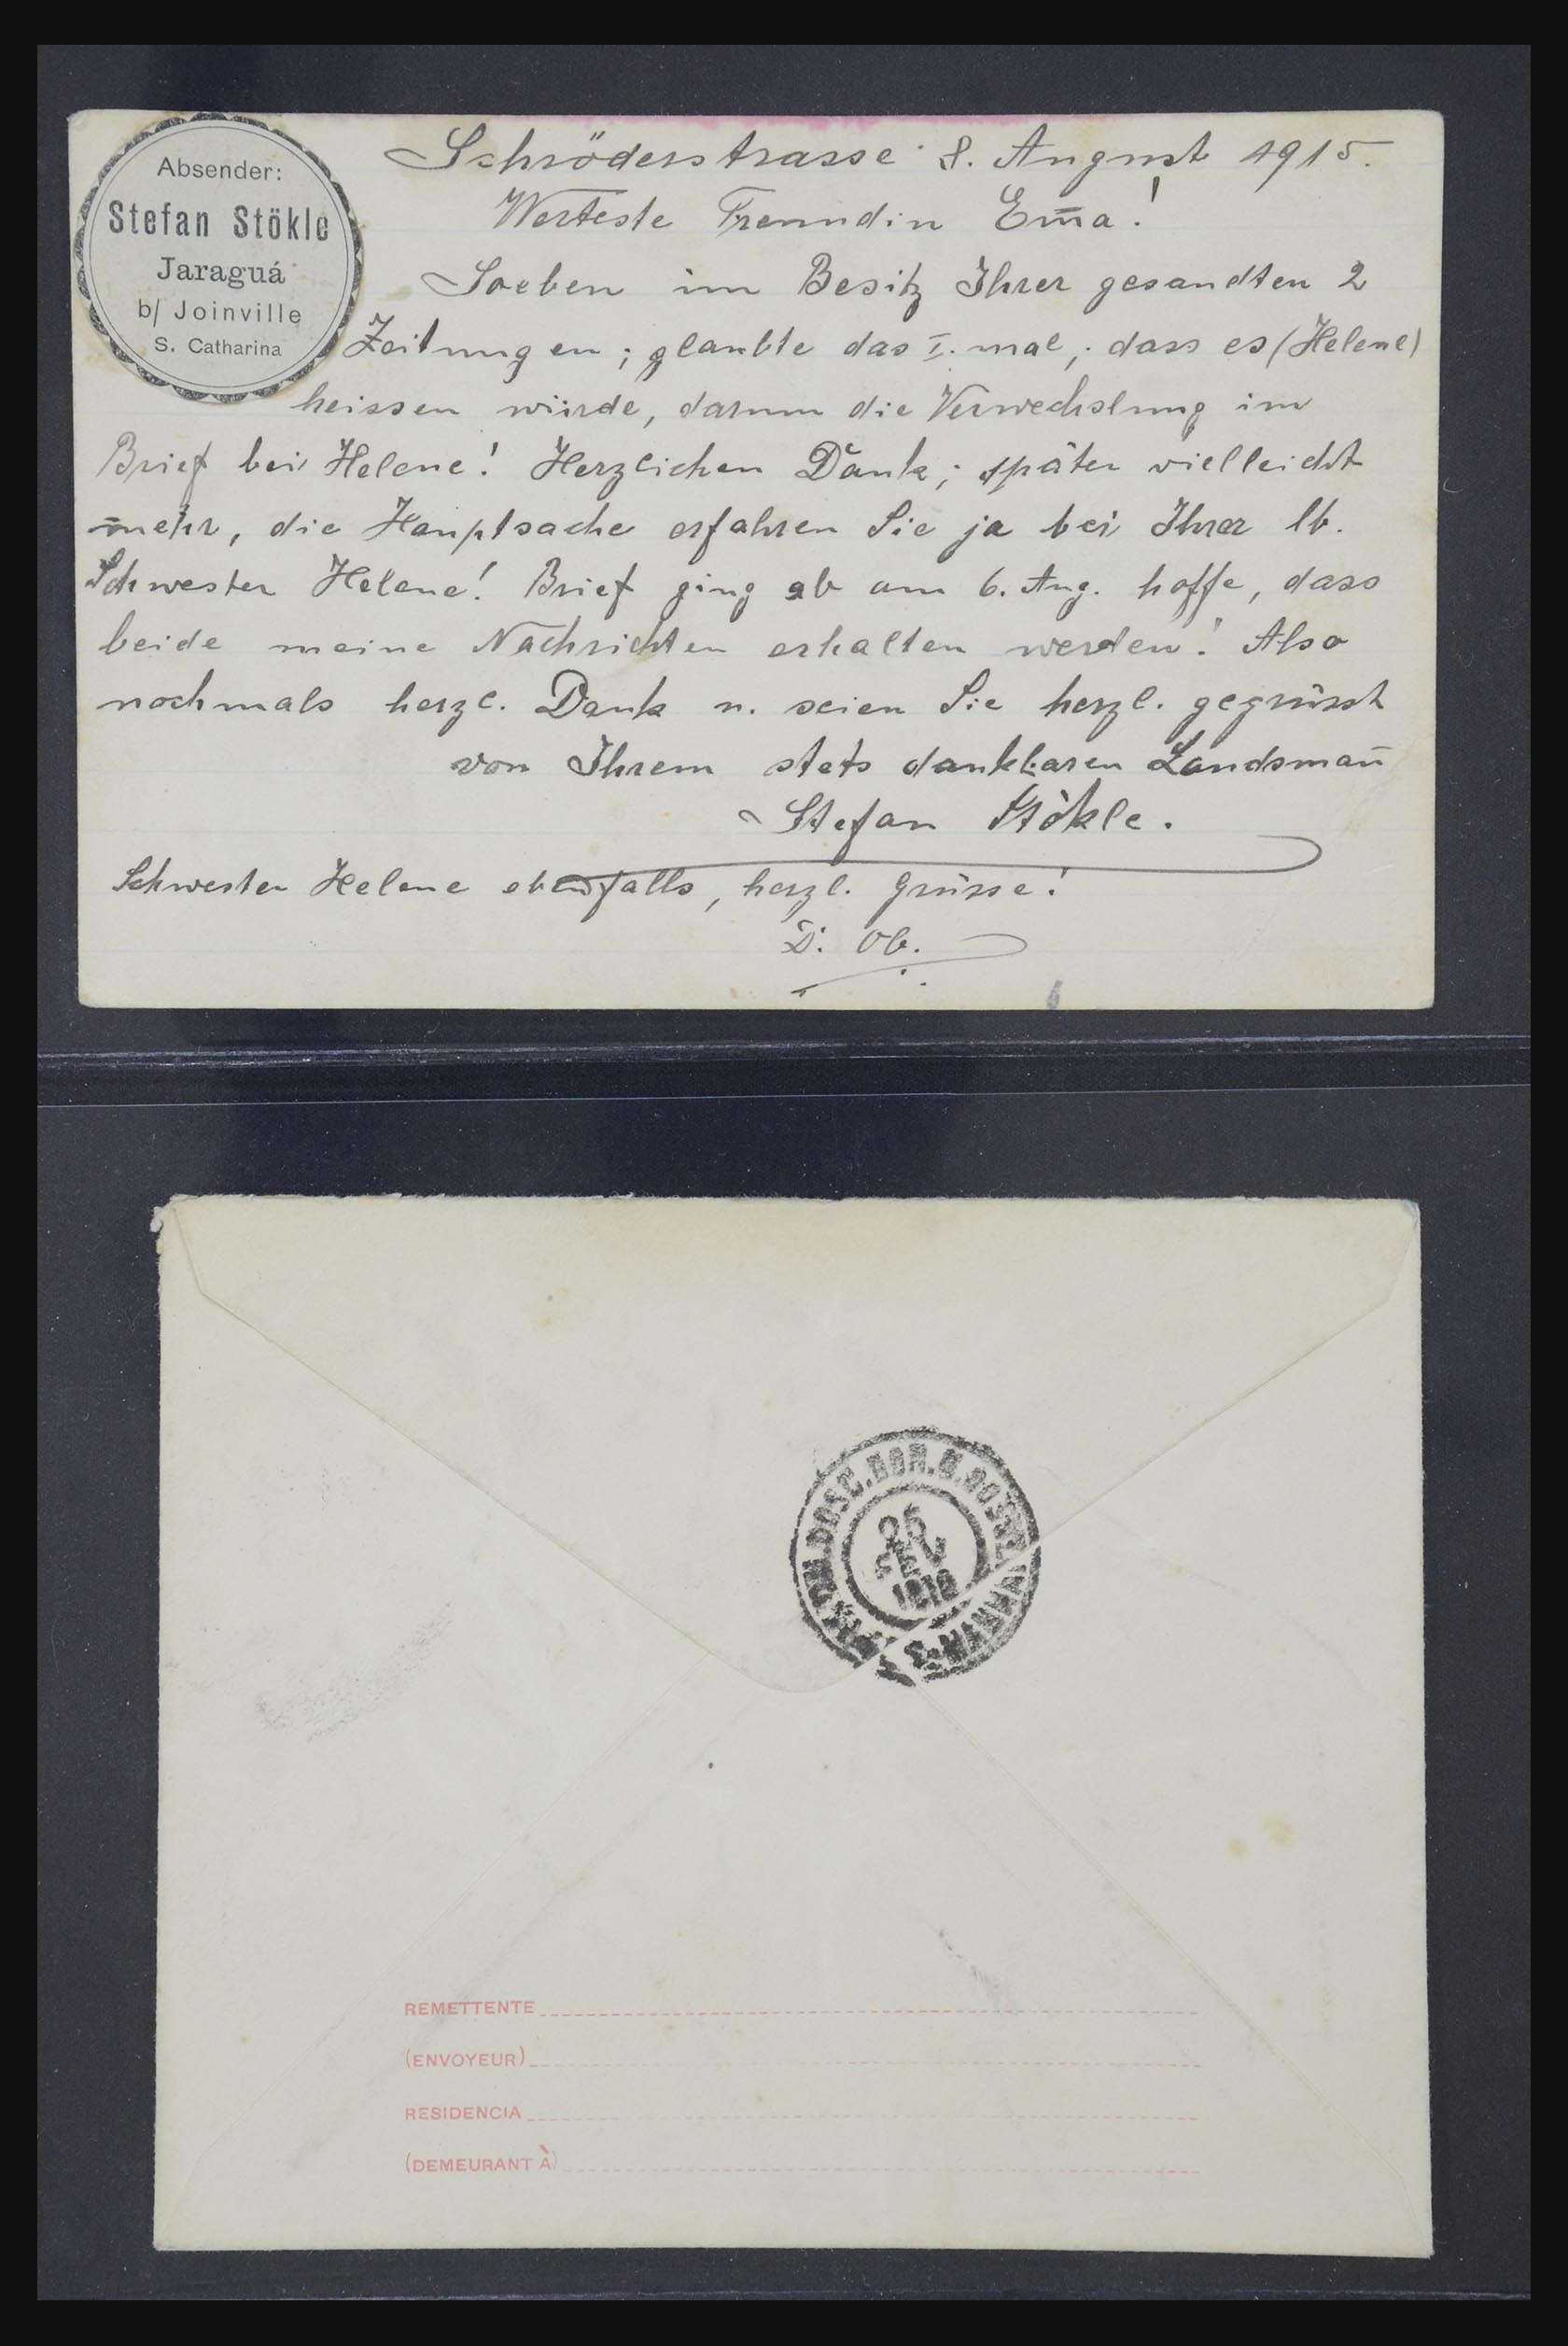 Absender:
Stefan Stökle
Jaraguá
b/ Joinville
S. Catharina
Schröderstrasse 8. August 1915.
Werteste Freundin Em̅a!
Soeben im Besitz Ihrer gesandten 2
Zeitungen; glaubte das I. mal, dass es (Helene)
heissen würde, darum die Verwechslung im
Brief bei Helene! Herzlichen Dank; später vielleicht
mehr, die Hauptsache erfahren Sie ja bei Ihrer lb.
Schwester Helene! Brief ging ab am 6. Aug. hoffe, dass
beide meine Nachrichten erhalten werden! Also
nochmals herzl. Dank u. seien Sie herzl. gegrüsst
von Ihrem stets dankbaren Landsman̅
Stefan Stökle.
Schwester Helene ebenfalls, herzl. Grüsse!
D. Ob.
REMETTENTE
(ENVOYEUR)
RESIDENCIA
(DEMEURANT À)